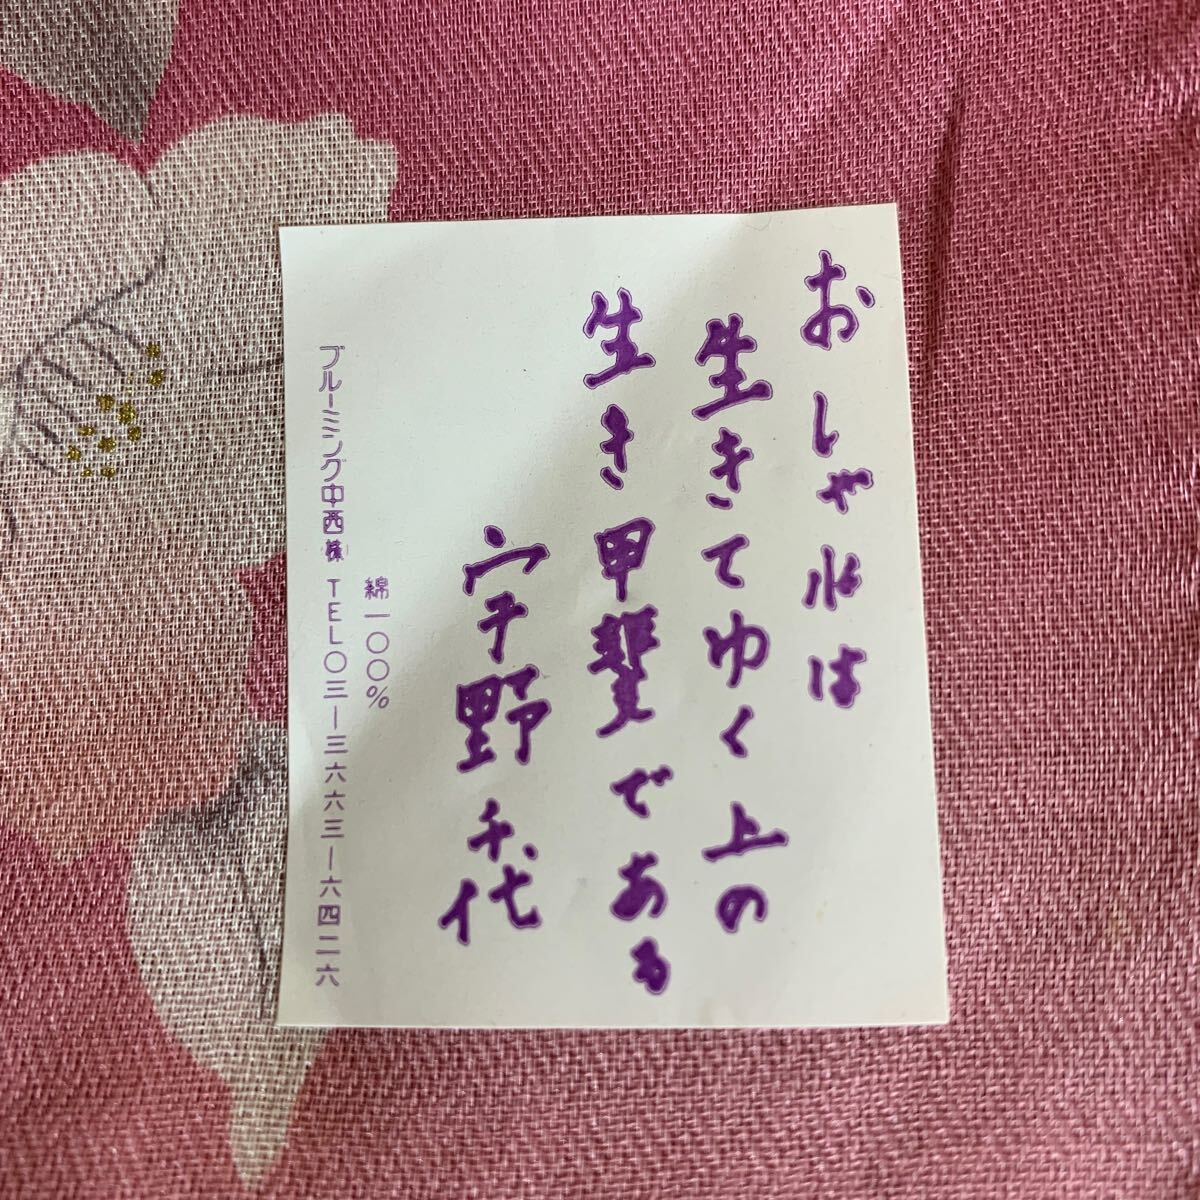 おしゃれは
生きてゆく上の
生き甲斐である
宇野千代
綿一〇〇%
ブルーミング中西㈱ TEL〇三ー三六六三ー六四二六